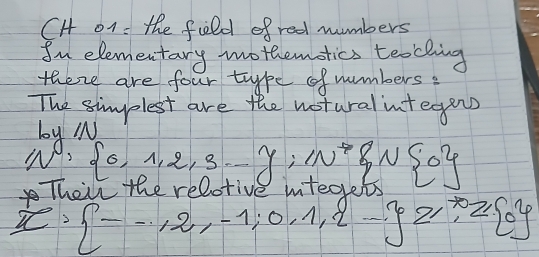 CH 01: the field of real numbers
In elementary mothematics teaching
there are four type of numbers:
The simplest are the natural integers
by ℕ
ℕ: {0, 1, 2, 3 ... }; ℕ* {ℕ {0}
* Then the relative integers
ℤ: {- - ., 2, -1; 0, 1, 2 ... } ℤ*, ℤ {0}